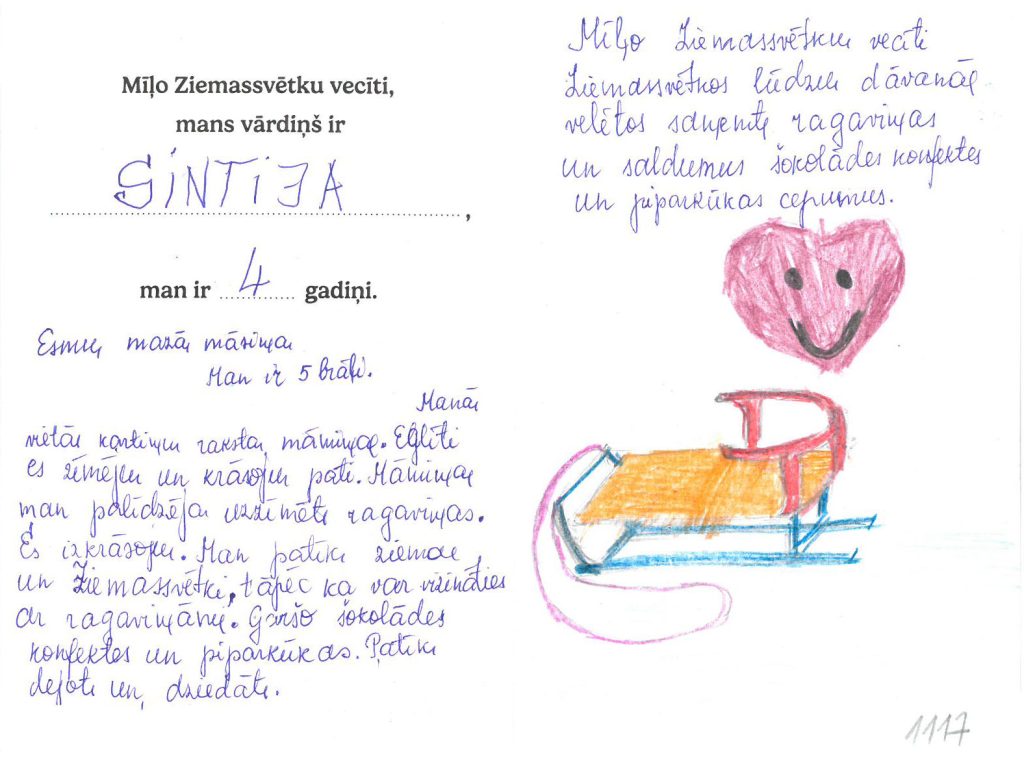 Mīļo Ziemassvētku vecīti,
mans vārdiņš ir
SINTIJA,
man ir 4 gadiņi.
Esmu mazā māsiņa
Man ir 5 brāļi.
Manā
vietā kartiņu raksta māmiņa. Eglīti
es zīmēju un krāsoju pati. Māmiņa
man palīdzēja uzzīmēt ragaviņas.
Es izkrāsoju. Man patīk ziema
un Ziemassvētki, tāpēc ka var vizināties
ar ragaviņām. Garšo šokolādes
konfektes un piparkūkas. Patīk
dejot un dziedāt.
Mīļo Ziemassvētku vecīti
Ziemassvētkos lūdzu dāvanā
vēlētos saņemt ragaviņas
un saldumus šokolādes konfektes
un piparkūkas cepumus.
1117